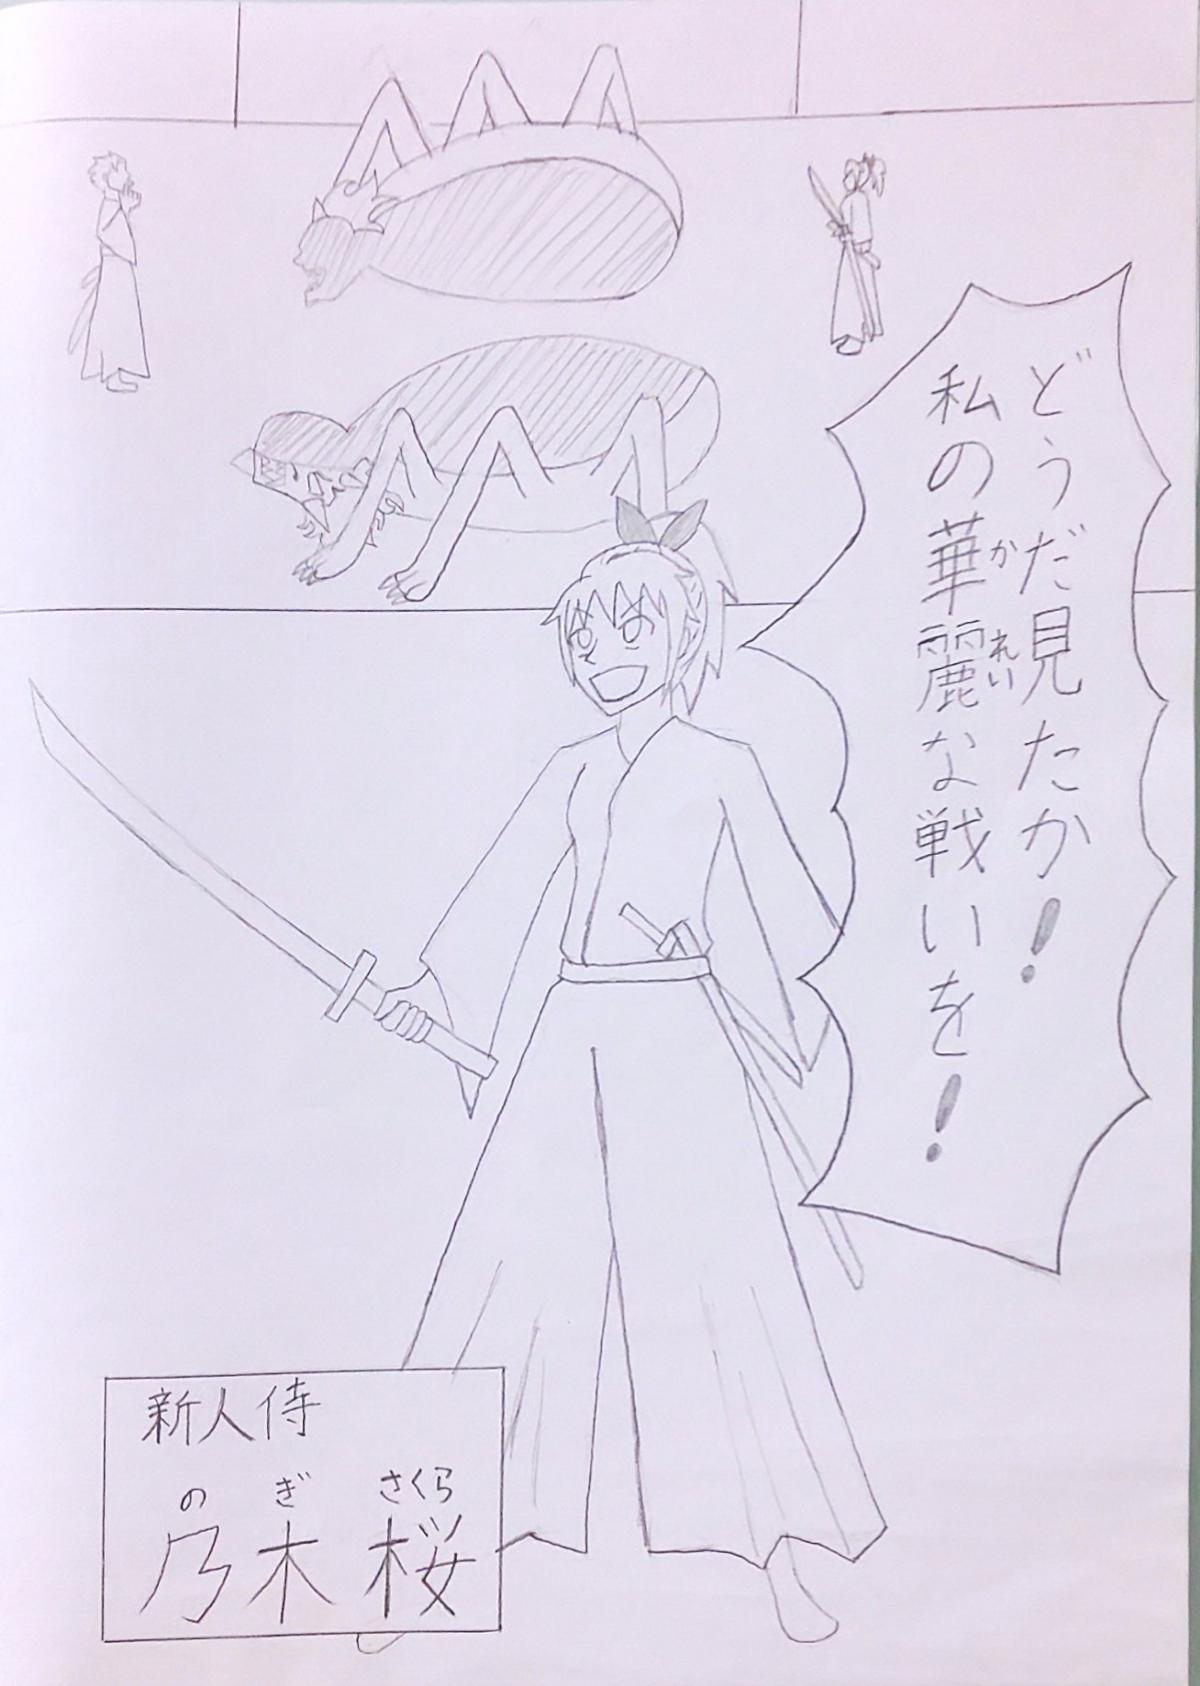 どうだ見たか！
私の華麗な戦いを！
かれい
新人侍
のぎ さくら
乃木 桜